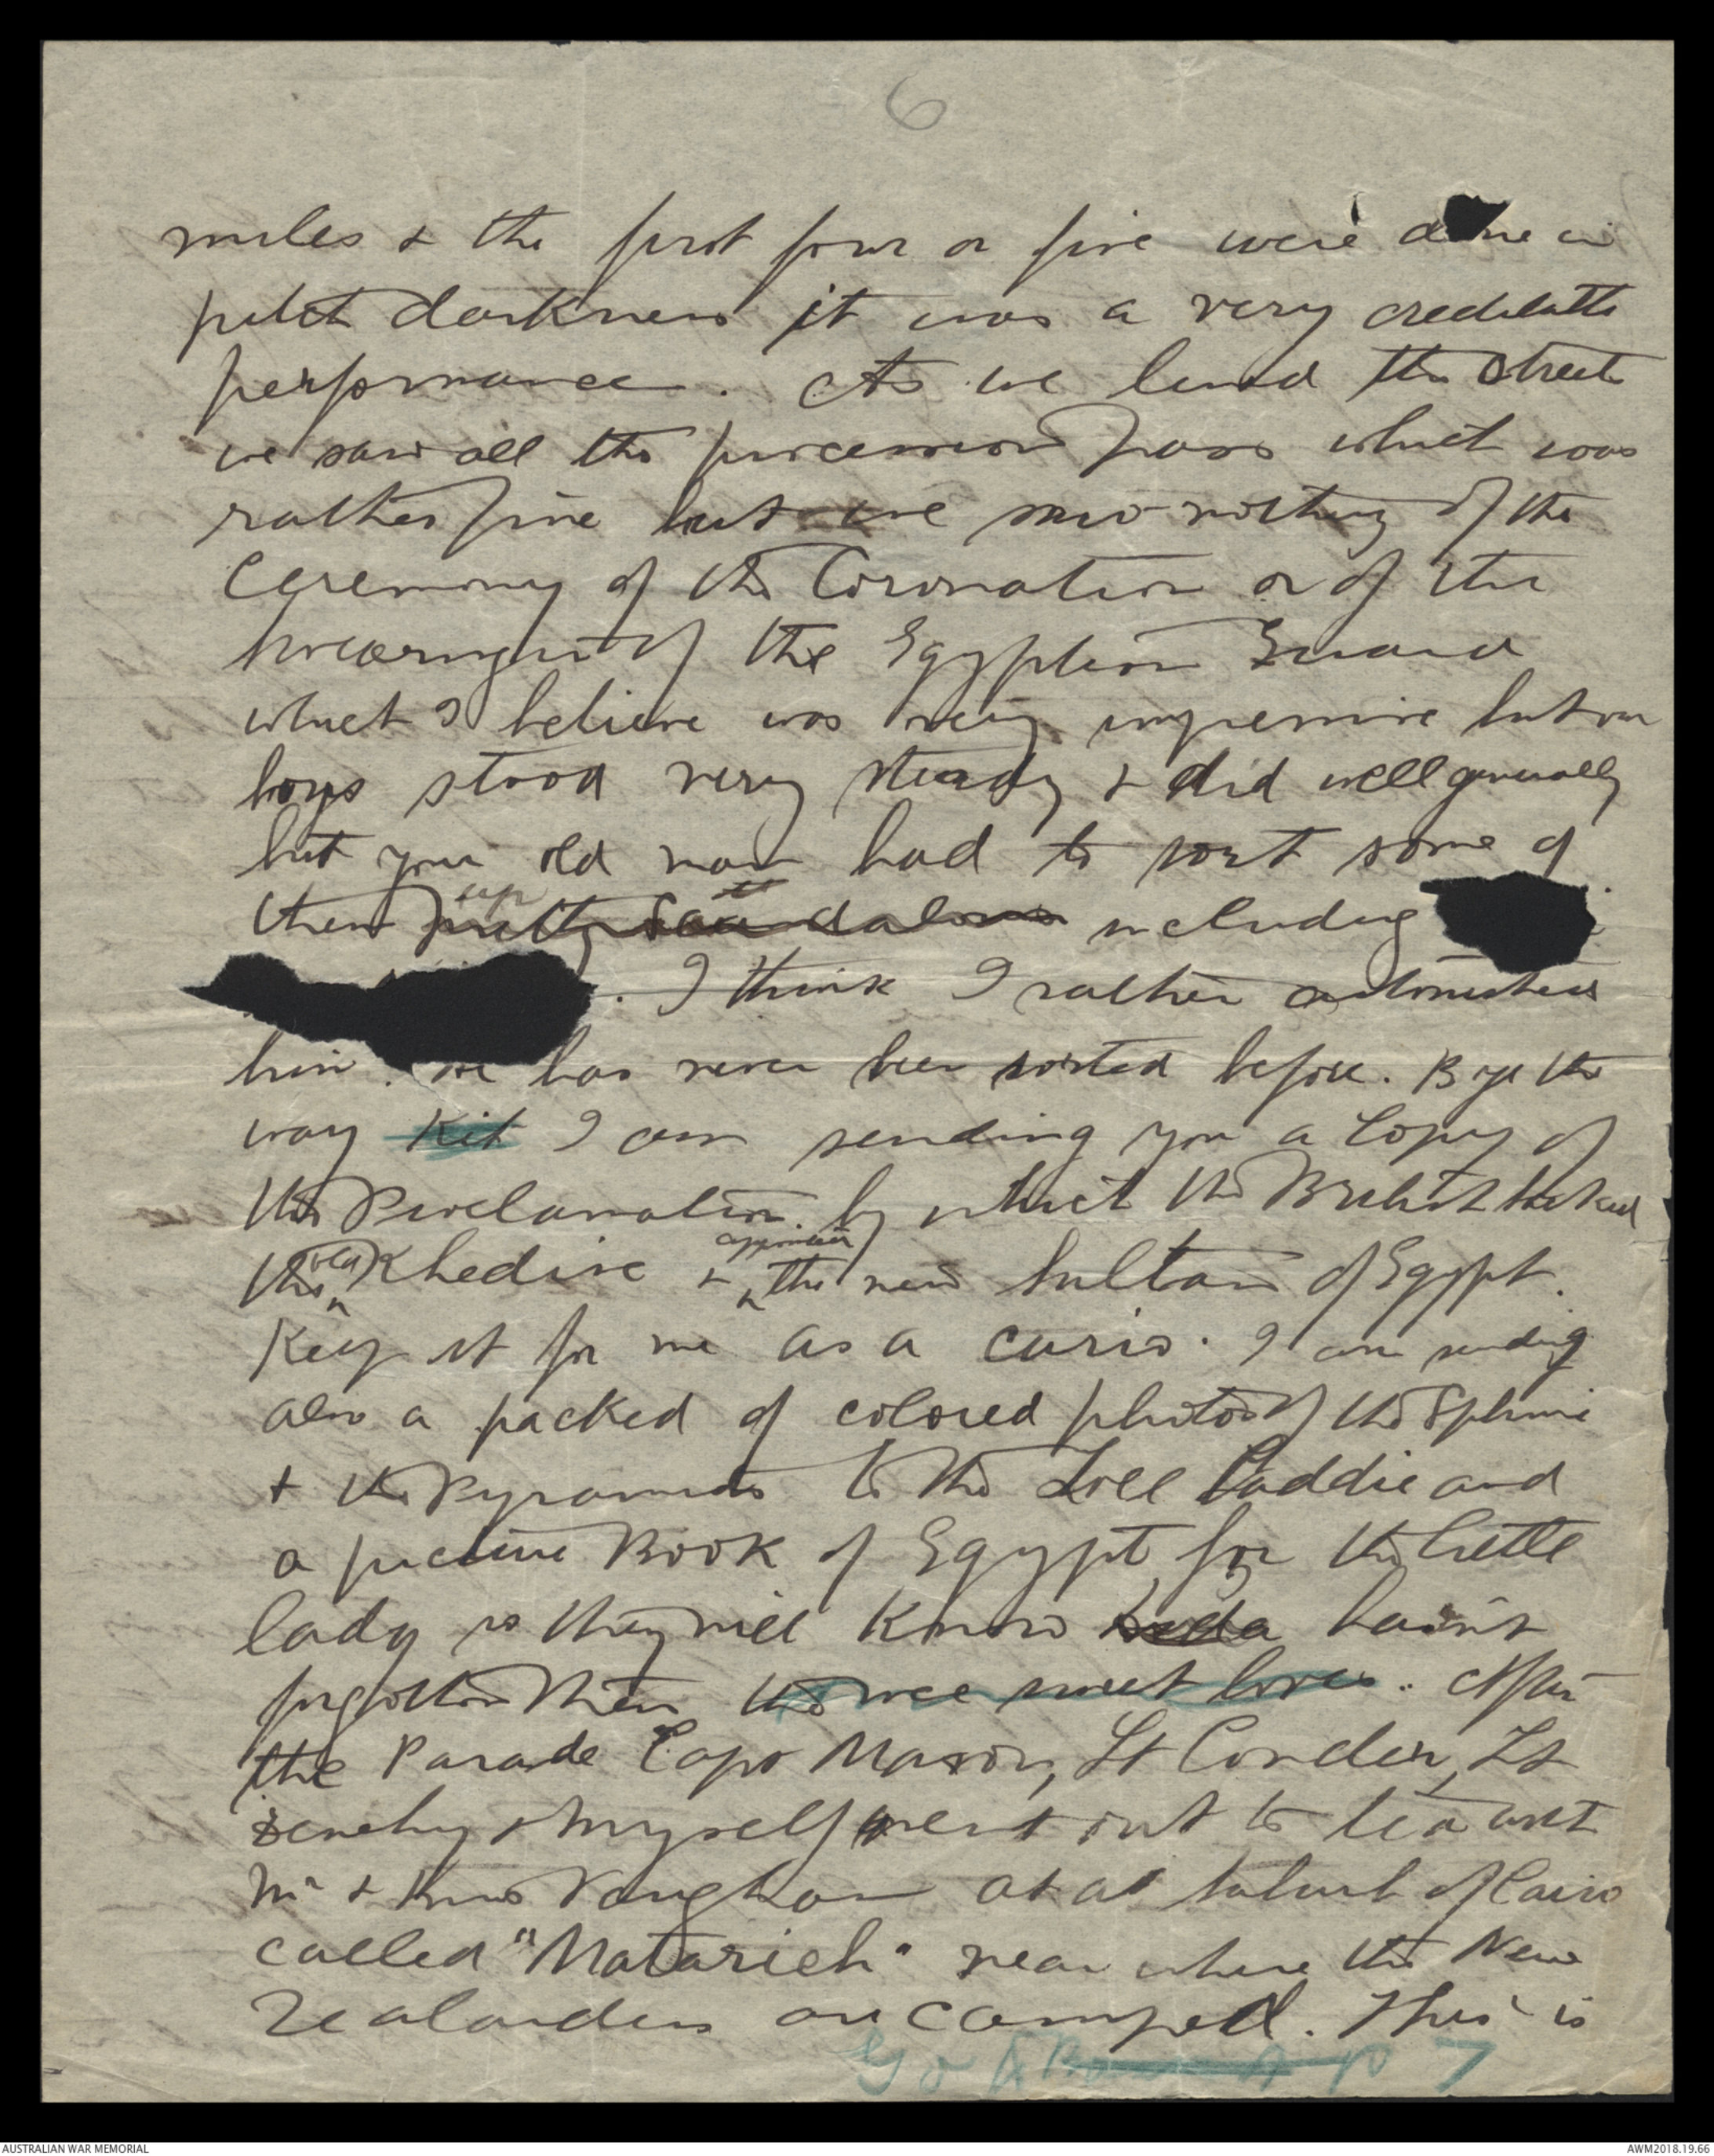 6
miles & the first four or five were done in
pitch darkness it was a very creditable
performance. As we lined the streets
we saw all the procession pass which was
rather fine but we saw nothing of the
Ceremony of the Coronation or of the
swearing in of the Egyptian Guard
which I believe was very impressive but our
boys stood very steady & did well generally
but your old man had to sort some of
up
them pretty scandalous including
. I think I rather astonished
him. He has never been sorted before. Bye the
way Kit I am sending you a Copy of
the Proclamation by which the British
old appointed
the Khedive & the new Sultan of Egypt.
Keep it for me as a curio. I am sending
also a packed of colored photos of the Sphinx
& the Pyramids to the Laddie and
a picture Book of Egypt for the little
lady so they will know dada hasn't
forgotten them the wee sweet loves. After
the Parade Capt Mason, Lt Corder, Lt
& myself went out to tea with
Mr & Mrs Vaughan at a suburb of Cairo
called "Matarieh" near where the New
Zealanders are camped. This is
Go to p 7
AUSTRALIAN WAR MEMORIAL
AWM2018.19.66